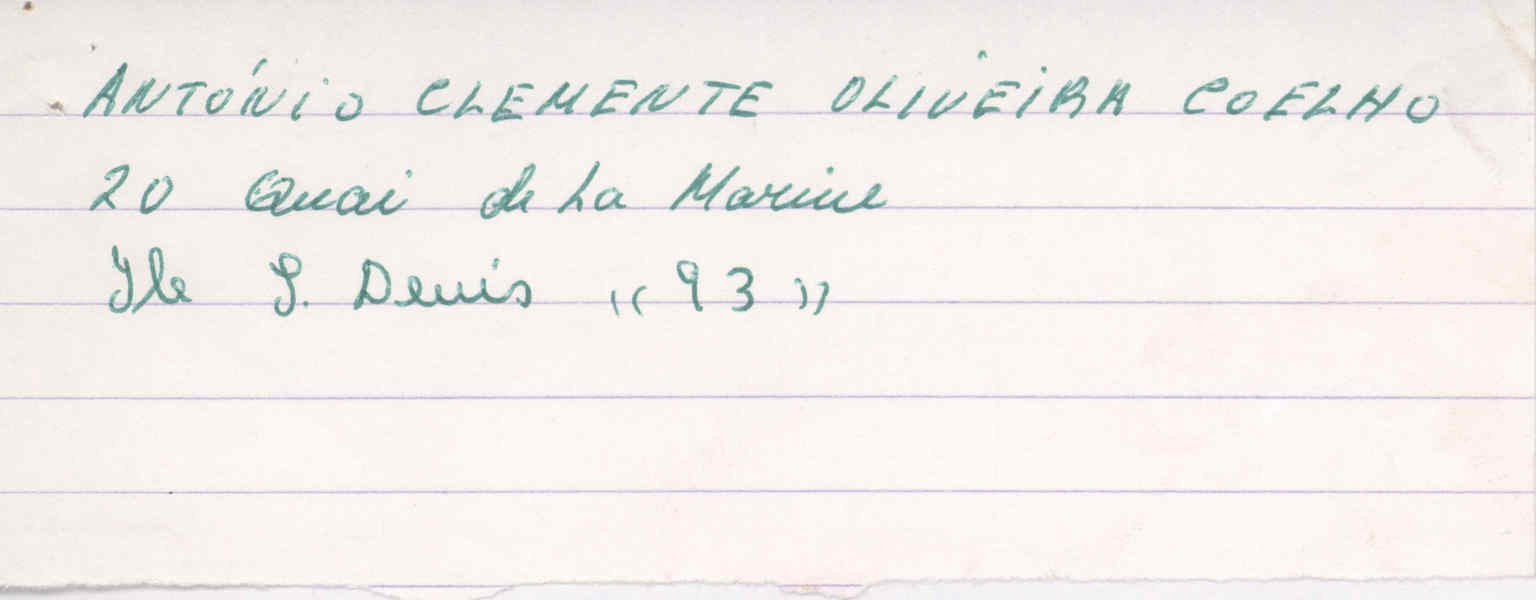 ANTÓNIO CLEMENTE OLIVEIRA COELHO
20 Quai de La Marine
Ile S. Denis "93"